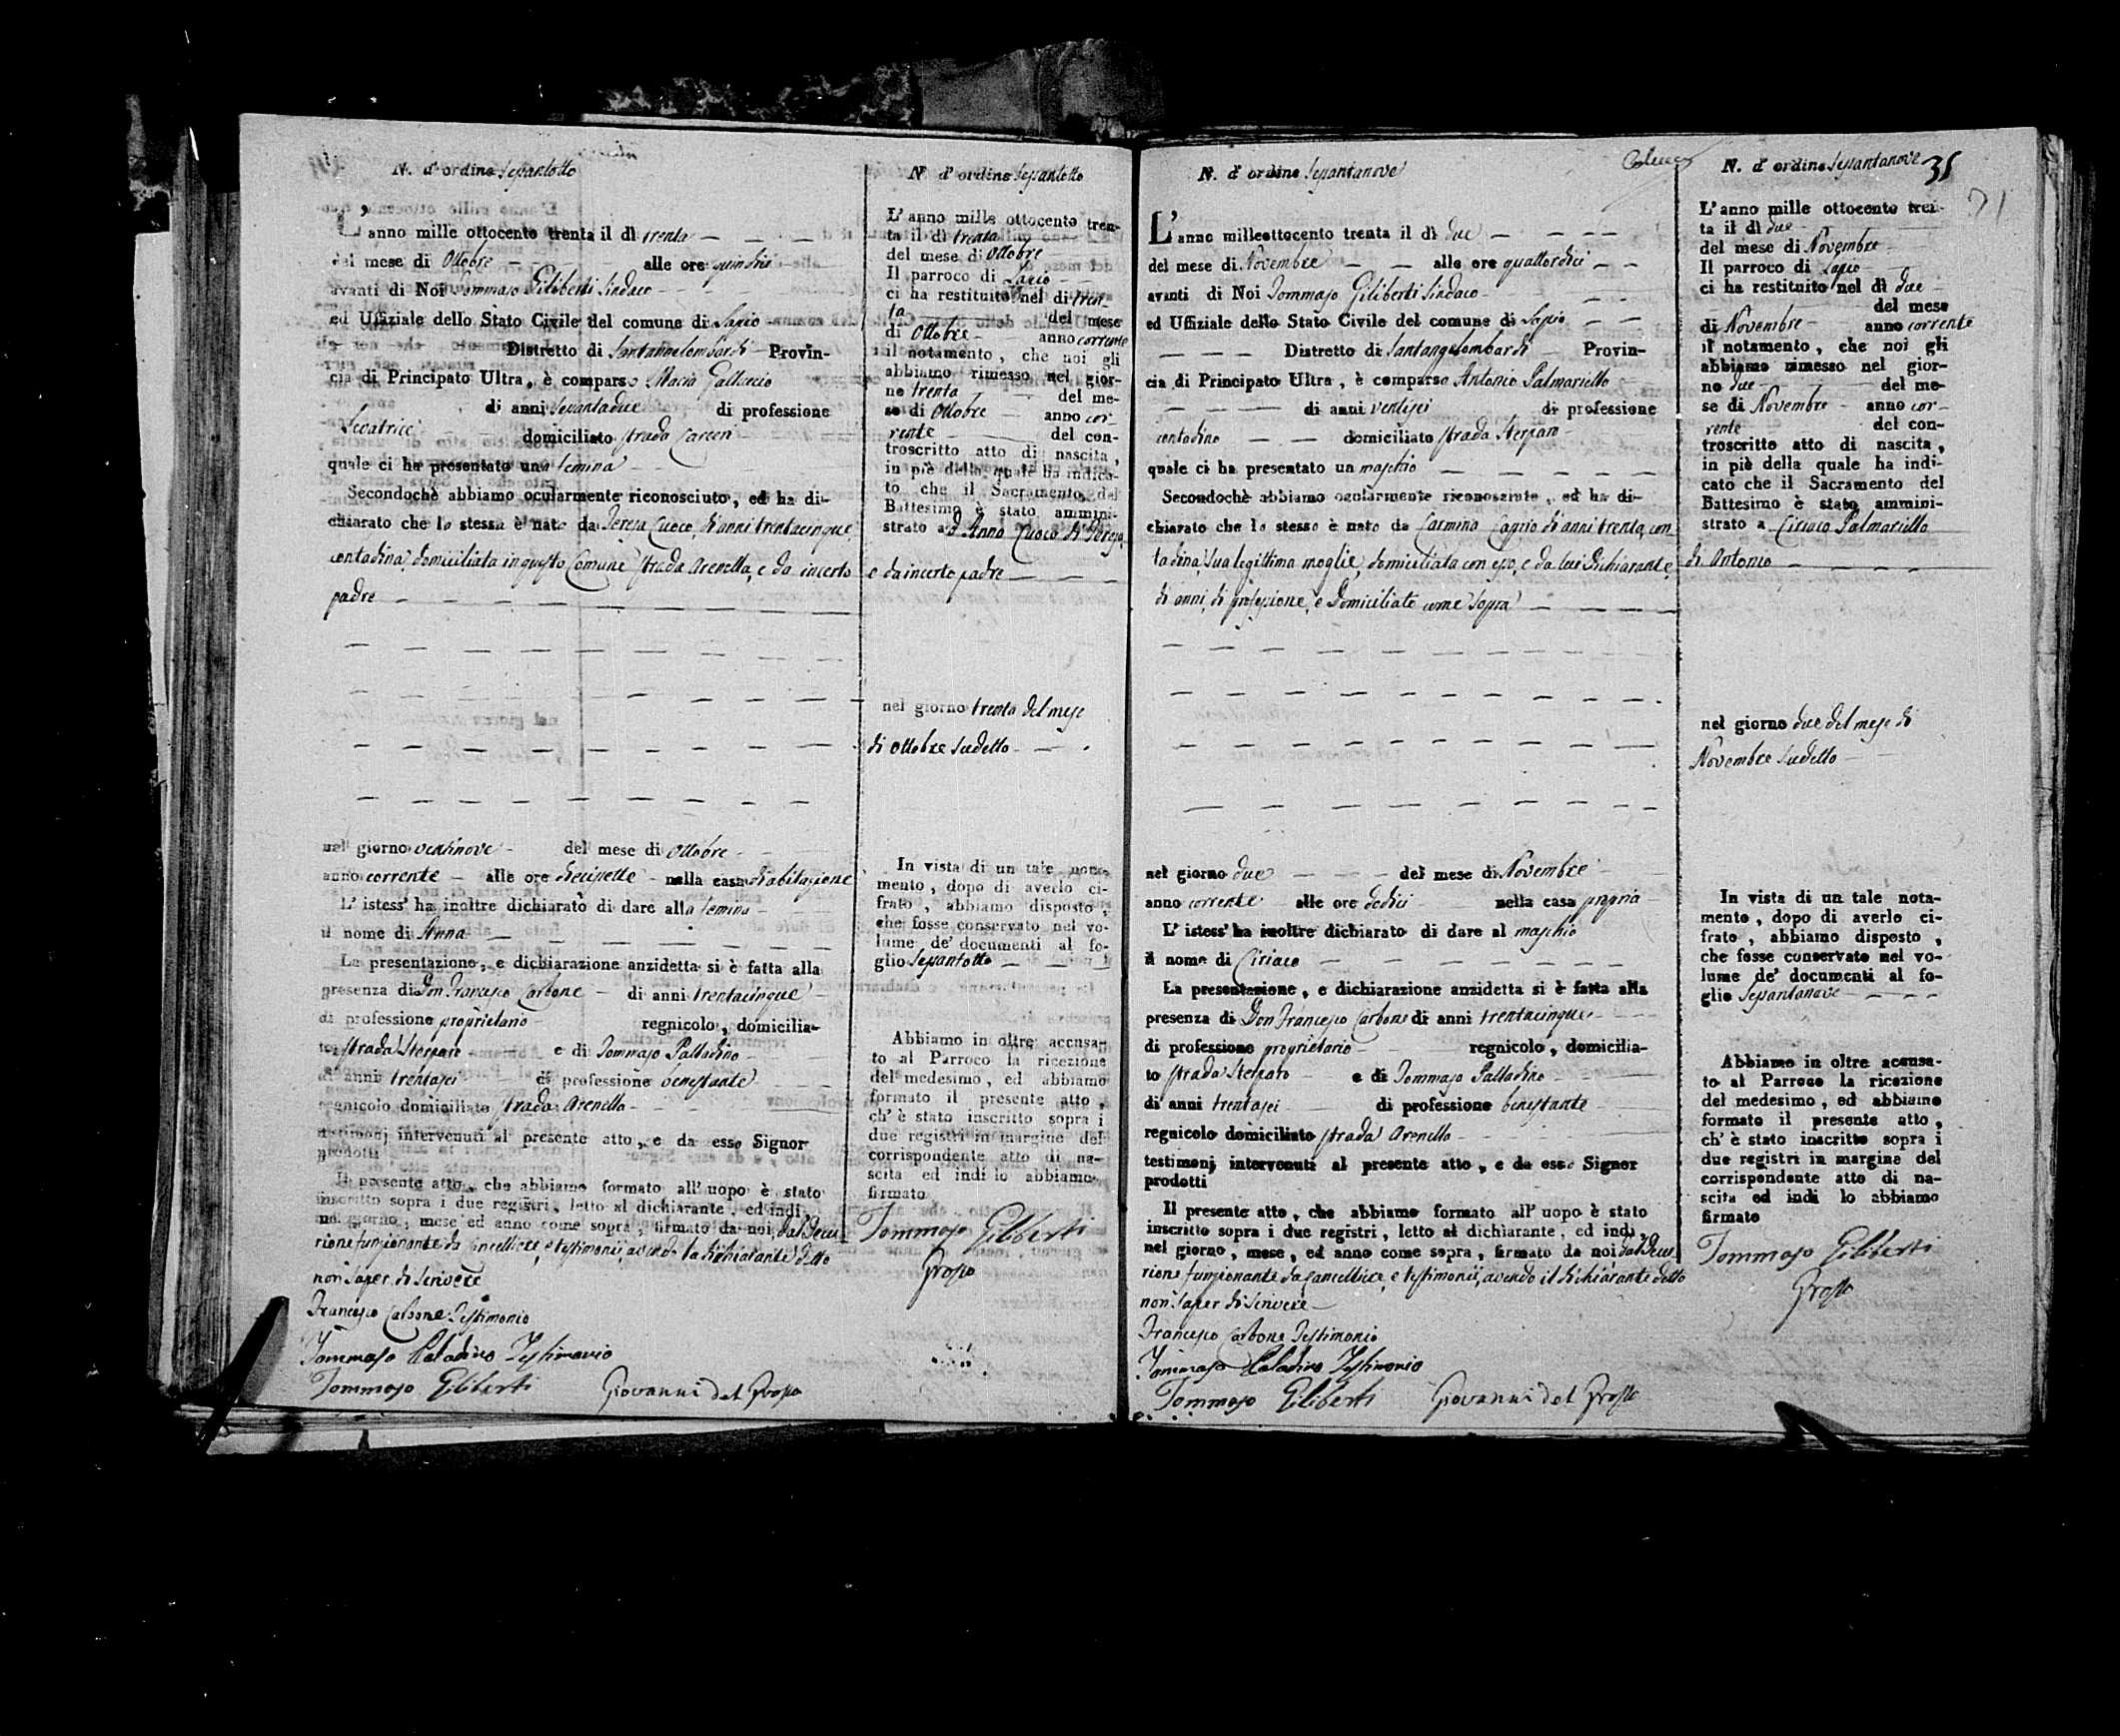 N. d'ordine Sessantotto
L'anno mille ottocento trenta il dì trenta
del mese di Ottobre alle ore quindici
avanti di Noi Tommaso Giliberti Sindaco
ed Uffiziale dello Stato Civile del comune di Lapio
Distretto di Santangelolombardi Provin-
cia di Principato Ultra, è comparsa Maria Galluccio
di anni sessantadue di professione
Levatrice domiciliato strada Carceri
quale ci ha presentato una femina
Secondochè abbiamo ocularmente riconosciuto, ed ha di-
chiarato che la stessa è nata da Teresa Cuoco, di anni trentacinque
contadina, domiciliata in questo Comune strada Arenella, e da incerto
padre
nel giorno ventinove del mese di Ottobre
anno corrente alle ore diecisette nella casa di abitazione
L'istess' ha inoltre dichiarato di dare alla femina
il nome di Anna
La presentazione, e dichiarazione anzidetta si è fatta alla
presenza di Don Francesco Carbone di anni trentacinque
di professione proprietario regnicolo, domicilia-
to strada Sterparo e di Tommaso Palladino
di anni trentasei di professione benestante
regnicolo domiciliato strada Arenella
testimonj intervenuti al presente atto, e da esso Signor
prodotti
Il presente atto, che abbiamo formato all' uopo è stato
inscritto sopra i due registri, letto al dichiarante, ed indi,
nel giorno, mese ed anno come sopra, firmato da noi, dal Decu
rione funzionante da Cancelliere, e testimonii, avendo la dichiarante detto
non saper di scrivere
Francesco Carbone Testimonio
Tommaso Paladino Testimonio
Tommaso Giliberti Giovanni del Grosso
N. d'ordine Sessantotto
L'anno mille ottocento tren-
ta il dì trenta
del mese di Ottobre
Il parroco di Lapio
ci ha restituito nel dì tren
ta del mese
di Ottobre anno corrente
il notamento, che noi gli
abbiamo rimesso nel gior-
no trenta del me-
se di Ottobre anno cor-
rente del con-
troscritto atto di nascita,
in piè della quale ha indica-
to che il Sacramento del
Battesimo è stato ammini-
strato ad Anna Cuoco di Teresa,
e da incerto padre
nel giorno trenta del mese
di Ottobre sudetto
In vista di un tale nota-
mento, dopo di averlo ci-
frato, abbiamo disposto,
che fosse conservato nel vo-
lume de' documenti al fo-
glio Sessantotto
Abbiamo in oltre accusa-
to al Parroco la ricezione
del medesimo, ed abbiamo
formato il presente atto,
ch'è stato inscritto sopra i
due registri in margine del
corrispondente atto di na-
scita ed indi lo abbiamo
firmato
Tommaso Giliberti
Grosso
N. d'ordine Sessantanove
L'anno milleottocento trenta il dì due
del mese di Novembre alle ore quattordici
avanti di Noi Tommaso Giliberti Sindaco
ed Uffiziale dello Stato Civile del comune di Lapio
Distretto di Santangelolombardi Provin-
cia di Principato Ultra, è comparso Antonio Palmariello
di anni ventisei di professione
contadino domiciliato strada Sterparo
quale ci ha presentato un maschio
Secondochè abbiamo ocularmente riconosciuto, ed ha di-
chiarato che lo stesso è nato da Carmina Caprio di anni trenta, con
tadina, sua legittima moglie, domiciliata con esso, e da lui dichiarante,
di anni, di professione, e domiciliato come sopra
nel giorno due del mese di Novembre
anno corrente alle ore dodici nella casa propria
L'istess' ha inoltre dichiarato di dare al maschio
il nome di Ciriaco
La presentazione, e dichiarazione anzidetta si è fatta alla
presenza di Don Francesco Carbone di anni trentacinque
di professione proprietario regnicolo, domicilia-
to strada Sterparo e di Tommaso Palladino
di anni trentasei di professione benestante
regnicolo domiciliato strada Arenella
testimonj intervenuti al presente atto, e da esso Signor
prodotti
Il presente atto, che abbiamo formato all' uopo è stato
inscritto sopra i due registri, letto al dichiarante, ed indi,
nel giorno, mese, ed anno come sopra, firmato da noi dal Decu
rione funzionante da Cancelliere, e testimonii, avendo il dichiarante detto
non saper di scrivere
Francesco Carbone Testimonio
Tommaso Paladino Testimonio
Tommaso Giliberti Giovanni del Grosso
N. d'ordine Sessantanove 35
71
L'anno mille ottocento tren-
ta il dì due
del mese di Novembre
Il parroco di Lapio
ci ha restituito nel dì due
del mese
di Novembre anno corrente
il notamento, che noi gli
abbiamo rimesso nel gior-
no due del me-
se di Novembre anno cor-
rente del con-
troscritto atto di nascita,
in piè della quale ha indi-
cato che il Sacramento del
Battesimo è stato ammini-
strato a Ciriaco Palmariello
di Antonio
nel giorno due del mese di
Novembre sudetto
In vista di un tale nota-
mento, dopo di averlo ci-
frato, abbiamo disposto,
che fosse conservato nel vo-
lume de' documenti al fo-
glio Sessantanove
Abbiamo in oltre accusa-
to al Parroco la ricezione
del medesimo, ed abbiamo
formato il presente atto,
ch'è stato inscritto sopra i
due registri in margine del
corrispondente atto di na-
scita ed indi lo abbiamo
firmato
Tommaso Giliberti
Grosso